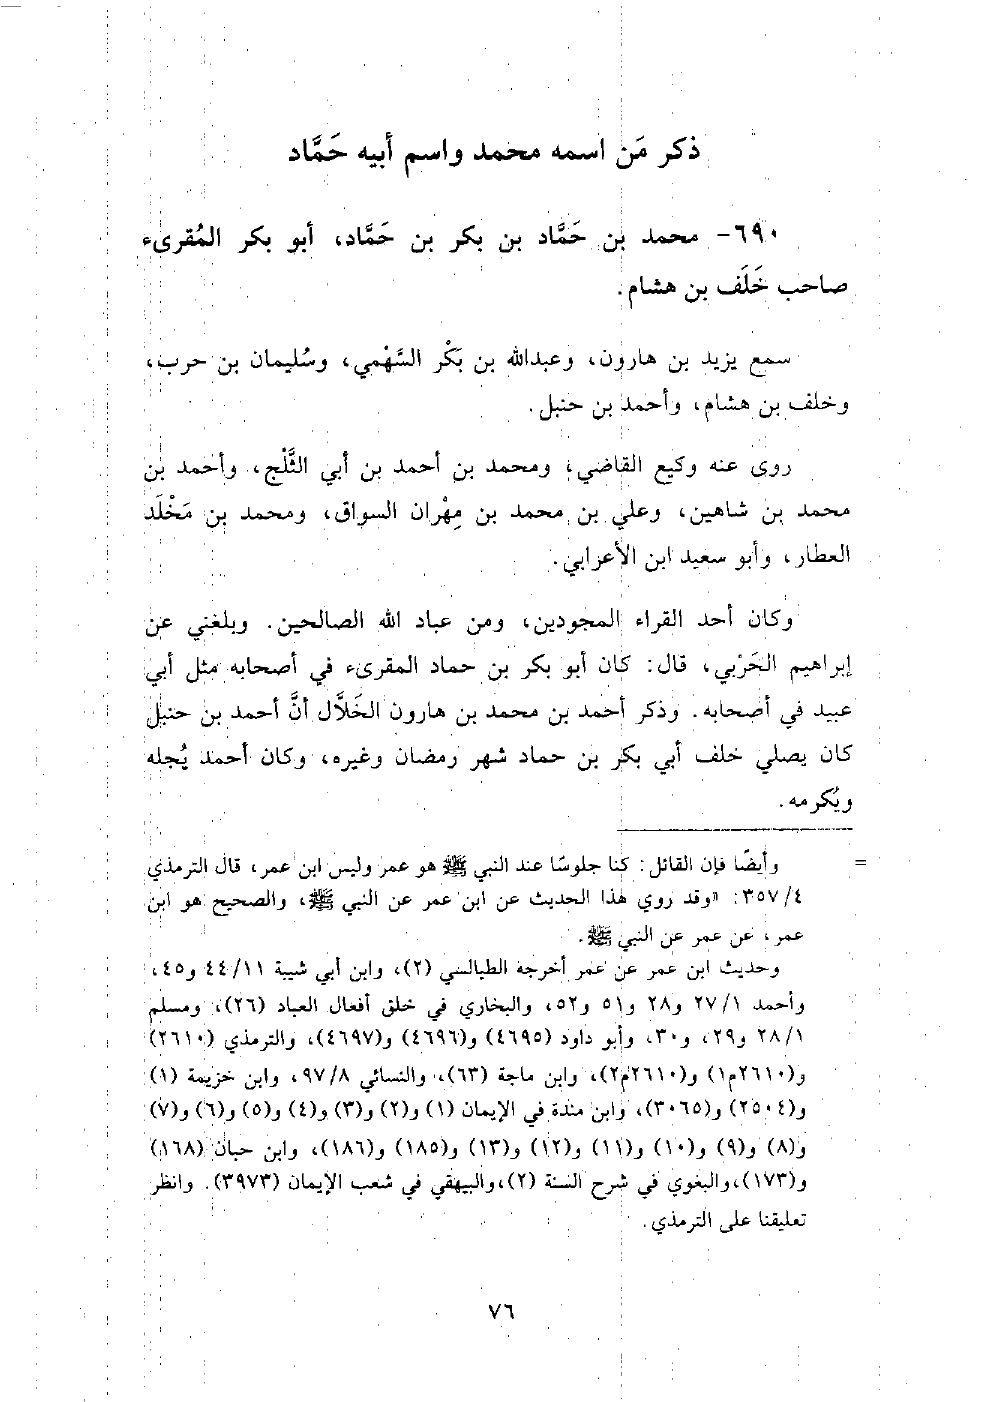 ذكر مَن اسمه محمد واسم أبيه حَمَّاد
٦٩٠- محمد بن حَمَّاد بن بكر بن حَمَّاد، أبو بكر المُقرىء
صاحب خَلَف بن هشام.
سمع يزيد بن هارون، وعبدالله بن بَكْر السَّهْمي، وسُليمان بن حرب،
وخلف بن هشام، وأحمد بن حنبل.
روى عنه وكيع القاضي، ومحمد بن أحمد بن أبي الثَّلْج، وأحمد بن
محمد بن شاهين، وعلي بن محمد بن مِهْران السواق، ومحمد بن مَخْلَد
العطار، وأبو سعيد ابن الأعرابي.
وكان أحد القراء المجودين، ومن عباد الله الصالحين. وبلغني عن
إبراهيم الحَرْبي، قال: كان أبو بكر بن حماد المقرىء في أصحابه مثل أبي
عبيد في أصحابه. وذكر أحمد بن محمد بن هارون الخَلَّال أنَّ أحمد بن حنبل
كان يصلي خلف أبي بكر بن حماد شهر رمضان وغيره، وكان أحمد يُجله
ويُكرمه.
= وأيضًا فإن القائل: كنا جلوسًا عند النبي ﷺ هو عمر وليس ابن عمر، قال الترمذي
٤/ ٣٥٧: «وقد روي هذا الحديث عن ابن عمر عن النبي ﷺ، والصحيح هو ابن
عمر، عن عمر عن النبي ﷺ.
وحديث ابن عمر عن عمر أخرجه الطيالسي (٢)، وابن أبي شيبة ١١/ ٤٤ و٤٥،
وأحمد ١/ ٢٧ و٢٨ و٥١ و٥٢، والبخاري في خلق أفعال العباد (٢٦)، ومسلم
١/ ٢٨ و٢٩، و٣٠، وأبو داود (٤٦٩٥) و(٤٦٩٦) و(٤٦٩٧)، والترمذي (٢٦١٠)
و(٢٦١٠م١) و(٢٦١٠م٢)، وابن ماجة (٦٣)، والنسائي ٨/ ٩٧، وابن خزيمة (١)
و(٢٥٠٤) و(٣٠٦٥)، وابن مندة في الإيمان (١) و(٢) و(٣) و(٤) و(٥) و(٦) و(٧)
و(٨) و(٩) و(١٠) و(١١) و(١٢) و(١٣) و(١٨٥) و(١٨٦)، وابن حبان (١٦٨)
و(١٧٣)،والبغوي في شرح السنة (٢)،والبيهقي في شعب الإيمان (٣٩٧٣). وانظر
تعليقنا على الترمذي.
٧٦